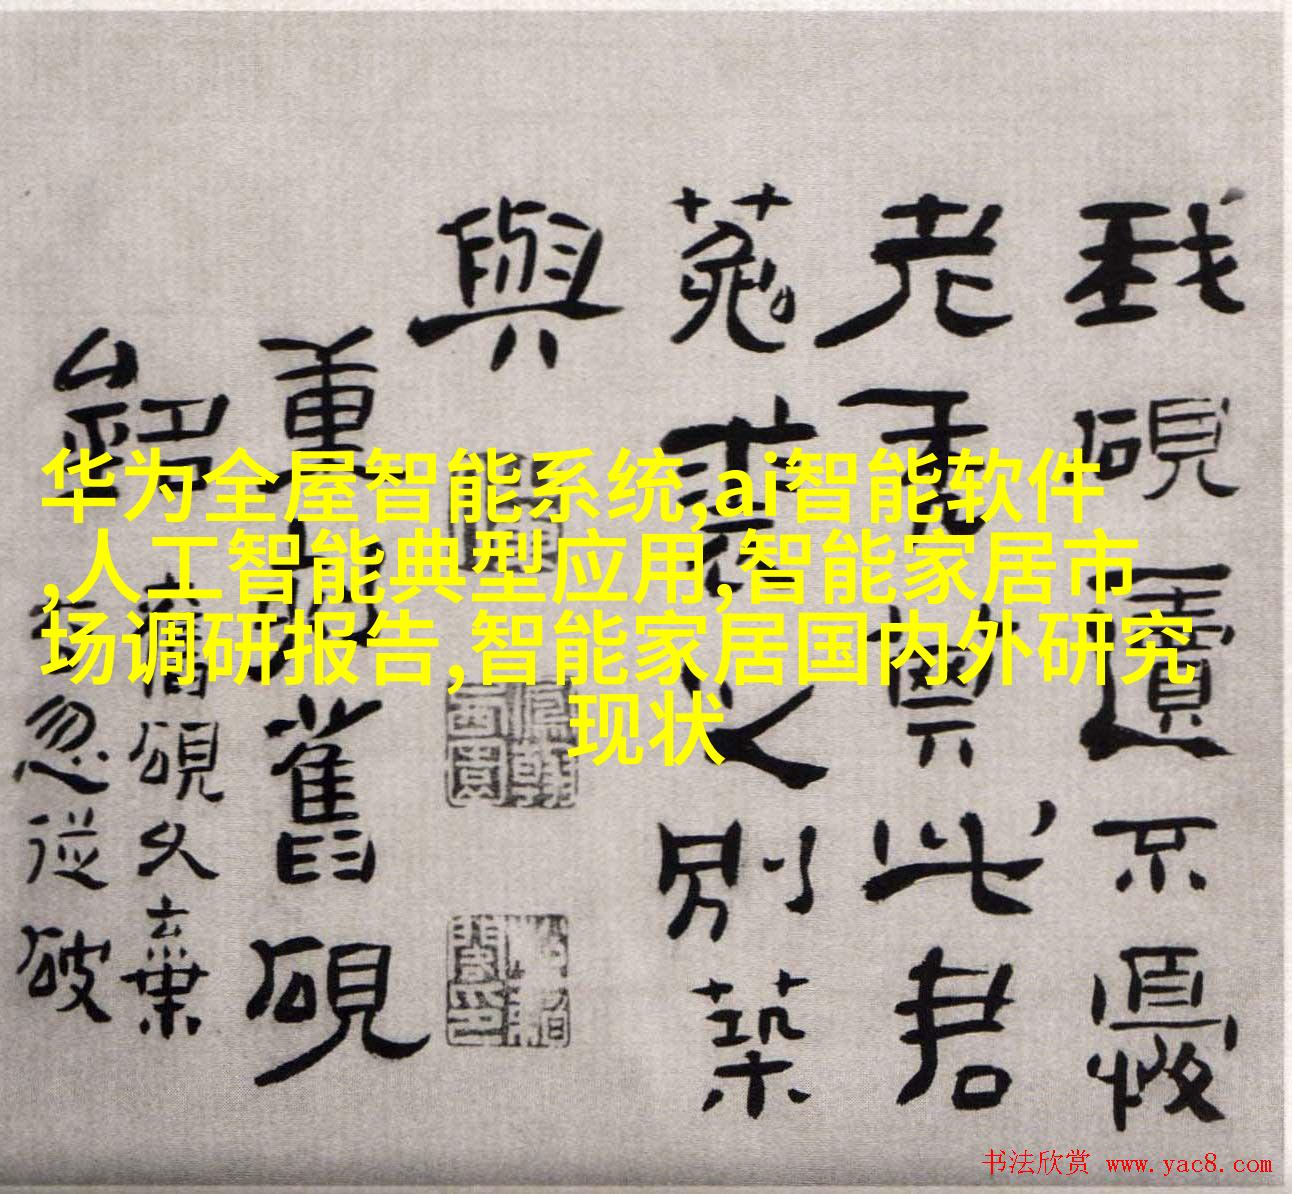 华为全屋智能系统,ai智能软件
,人工智能典型应用,智能家居市
场调研报告,智能家居国内外研究
现状
硯遺不
老此君
菟裘別築
與
重舊硯
舊硯久棄
忽從破
书法欣赏 www.yac8.com